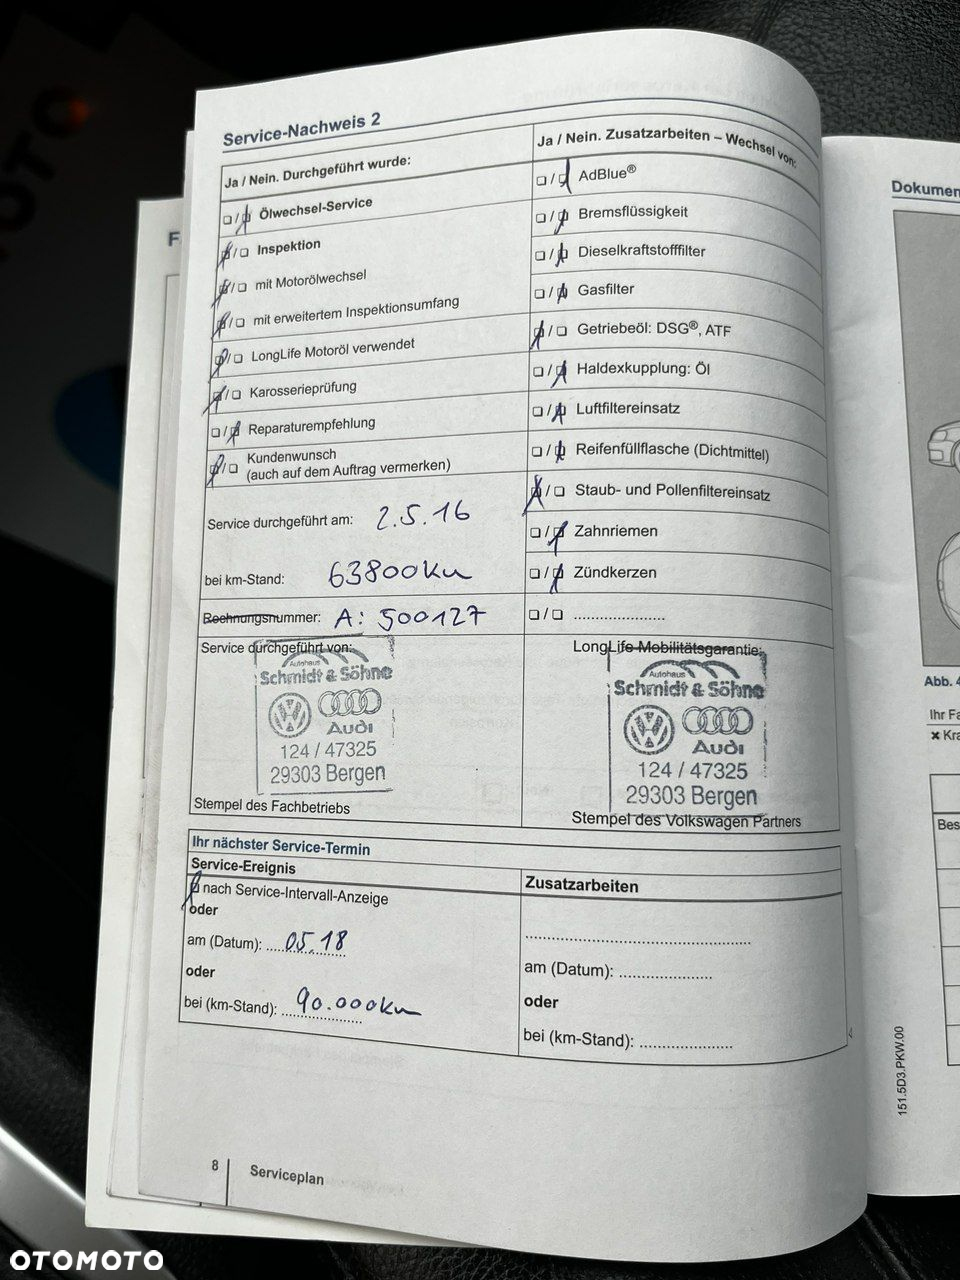 Service-Nachweis 2
Ja / Nein. Durchgeführt wurde:
Ölwechsel-Service
Inspektion
mit Motorölwechsel
mit erweitertem Inspektionsumfang
LongLife Motoröl verwendet
Karosserieprüfung
Reparaturempfehlung
Kundenwunsch
(auch auf dem Auftrag vermerken)
Service durchgeführt am: 2.5.16
bei km-Stand: 63800km
Rechnungsnummer: A: 500127
Service durchgeführt von:
Autohaus
Schmidt & Söhne
Audi
124 / 47325
29303 Bergen
Stempel des Fachbetriebs
Ja / Nein. Zusatzarbeiten – Wechsel von:
AdBlue®
Bremsflüssigkeit
Dieselkraftstofffilter
Gasfilter
Getriebeöl: DSG®, ATF
Haldexkupplung: Öl
Luftfiltereinsatz
Reifenfüllflasche (Dichtmittel)
Staub- und Pollenfiltereinsatz
Zahnriemen
Zündkerzen
LongLife-Mobilitätsgarantie:
Autohaus
Schmidt & Söhne
Audi
124 / 47325
29303 Bergen
Stempel des Volkswagen Partners
Ihr nächster Service-Termin
Service-Ereignis
nach Service-Intervall-Anzeige
oder
am (Datum): 05.18
oder
bei (km-Stand): 90.000km
Zusatzarbeiten
am (Datum):
oder
bei (km-Stand):
8
Serviceplan
Dokumen
Abb. 4
Ihr Fa
Kra
Bes
151.5D3.PKW.00
OTOMOTO